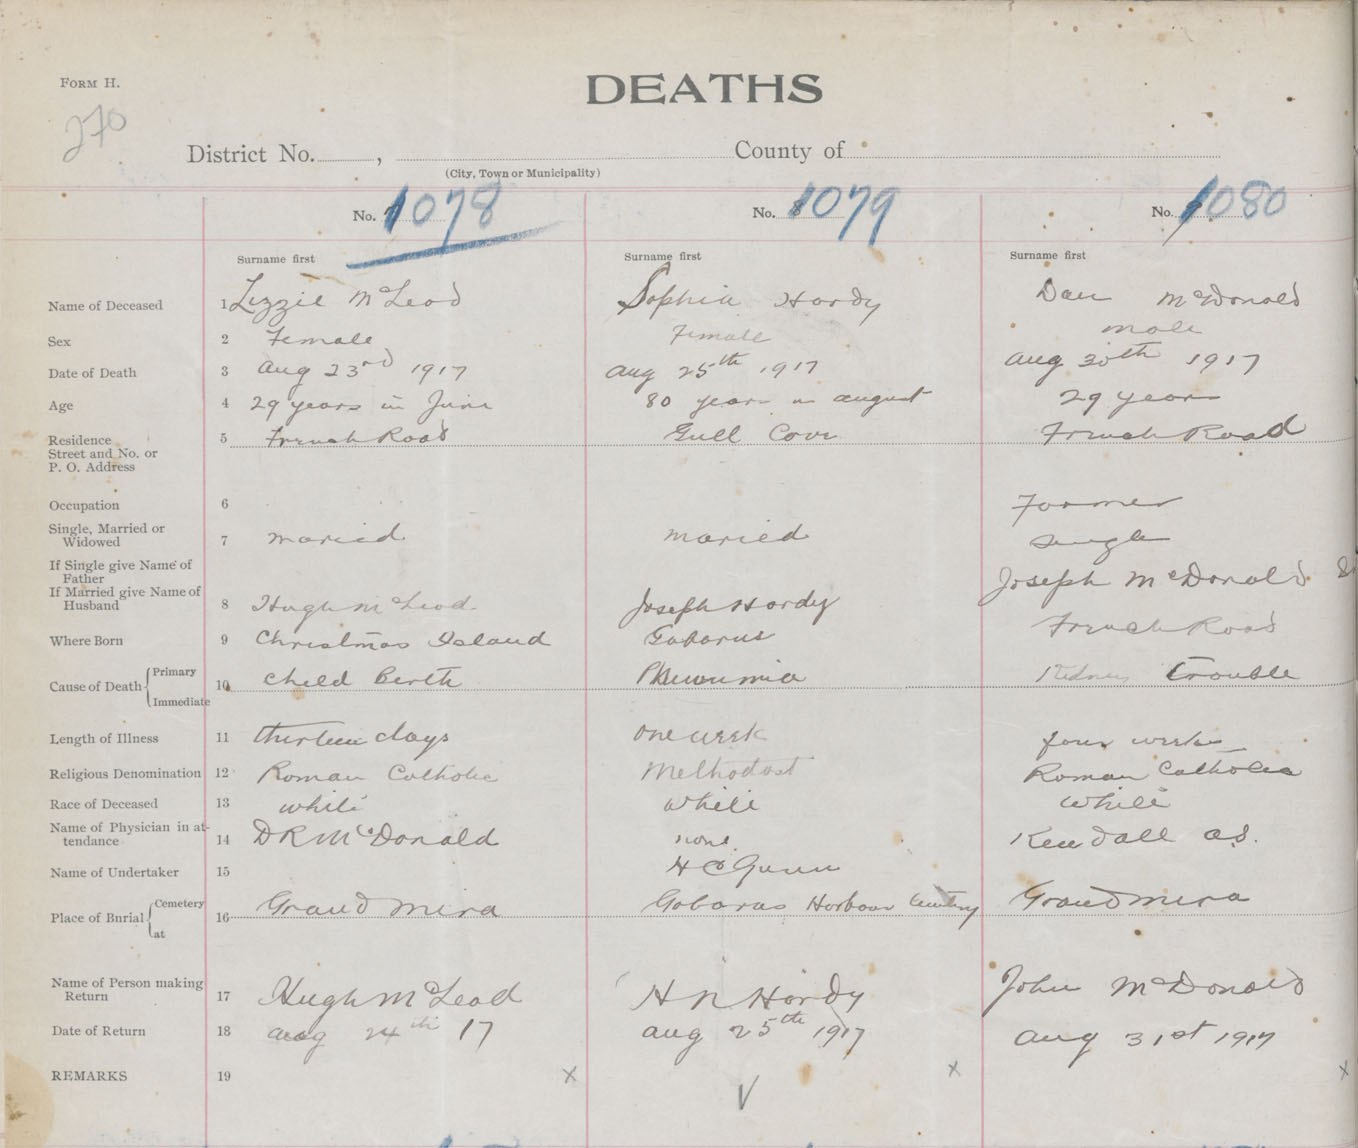 FORM H.
DEATHS
270
District No. , County of
(City, Town or Municipality)
No. 1078 No. 1079 No. 1080
Surname first Surname first Surname first
Name of Deceased 1 Lizzie McLeod Sophia Hardy Dan McDonald
Sex 2 Female Female male
Date of Death 3 Aug 23rd 1917 Aug 25th 1917 Aug 30th 1917
Age 4 29 years in June 80 years in august 29 years
Residence 5 French Road Gull Cove French Road
Street and No. or
P. O. Address
Occupation 6 Farmer
Single, Married or
Widowed 7 maried maried single
If Single give Name of
Father Joseph McDonald
If Married give Name of
Husband 8 Hugh McLeod Joseph Hardy
Where Born 9 Christmas Island Gabarus French Road
Cause of Death Primary 10 Child Berth Pneumonia Kidney trouble
Immediate
Length of Illness 11 thirteen days one week four weeks
Religious Denomination 12 Roman Catholic Methodist Roman Catholic
Race of Deceased 13 white white white
Name of Physician in at-
tendance 14 DR McDonald none Kendall
Name of Undertaker 15 H C Gunn
Place of Burial Cemetery 16 Grand Mira Gabarus Harbour Cemetery Grand mira
at
Name of Person making
Return 17 Hugh McLeod H N Hardy John McDonald
Date of Return 18 aug 24th 17 aug 25th 1917 aug 31st 1917
REMARKS 19 x x x